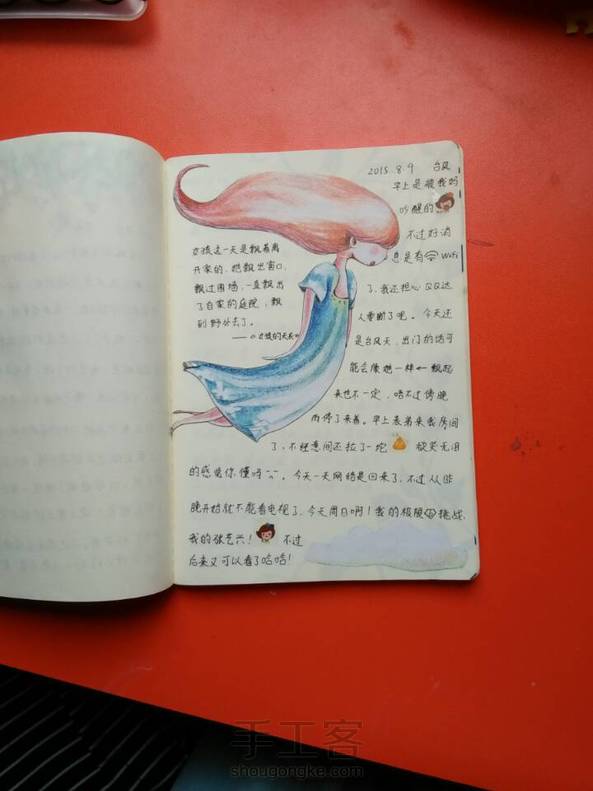 2015.8.9 台风
早上是被我妈
吵醒的
不过好消
息是有 WiFi
了,我还担心QQ达
人要断了呢。今天还
是台风天,出门的话可
能会像她一样←飘起
来也不一定,唔不过傍晚
雨停了来着。早上表弟来我房间
了,不经意间还拉了一坨 哭笑无泪
的感觉你懂吗。今天一天网络是回来了,不过从昨
晚开始就不能看电视了,今天周日啊!我的极限挑战,
我的张艺兴! 不过
后来又可以看了哈哈!
女孩这一天是飘着离
开家的,她飘出窗口,
飘过围墙,一直飘出
了自家的庭院,飘
到野外去了。
——《女孩的天长》
手工客
shougongke.com